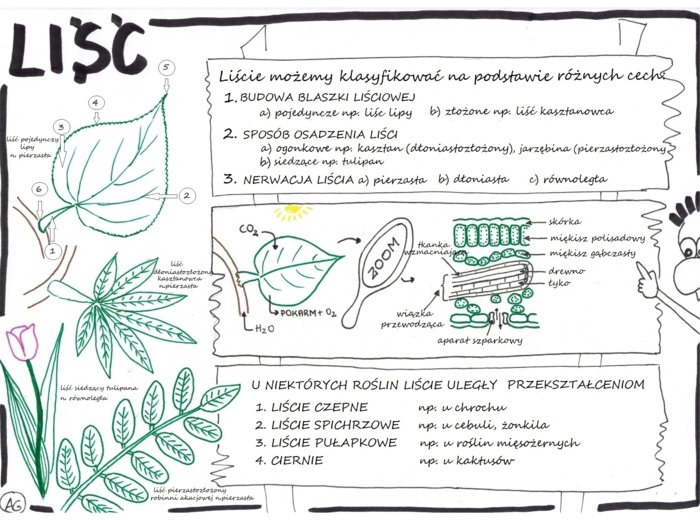 LIŚĆ
5
4
3
liść pojedynczy
lipy
n. pierzasta
6
2
1
liść
dłoniastozłożony
kasztanowca
n.pierzasta
liść siedzący tulipana
n. równoległa
liść pierzastozłożony
robinni akacjowej n.pierzasta
AG
Liście możemy klasyfikować na podstawie różnych cech:
1. BUDOWA BLASZKI LIŚCIOWEJ
a) pojedyncze np. liśc lipy b) złożone np. liść kasztanowca
2. SPOSÓB OSADZENIA LIŚCI
a) ogonkowe np. kasztan (dłoniastozłożony), jarzębina (pierzastozłożony)
b) siedzące np. tulipan
3. NERWACJA LIŚCIA a) pierzasta b) dłoniasta c) równoległa
CO2
H2O
POKARM + O2
ZOOM
tkanka
wzmacniająca
wiązka
przewodząca
skórka
miękisz polisadowy
miękisz gąbczasty
drewno
łyko
aparat szparkowy
U NIEKTÓRYCH ROŚLIN LIŚCIE ULEGŁY PRZEKSZTAŁCENIOM
1. LIŚCIE CZEPNE np. u chrochu
2. LIŚCIE SPICHRZOWE np. u cebuli, żonkila
3. LIŚCIE PUŁAPKOWE np. u roślin mięsożernych
4. CIERNIE np. u kaktusów